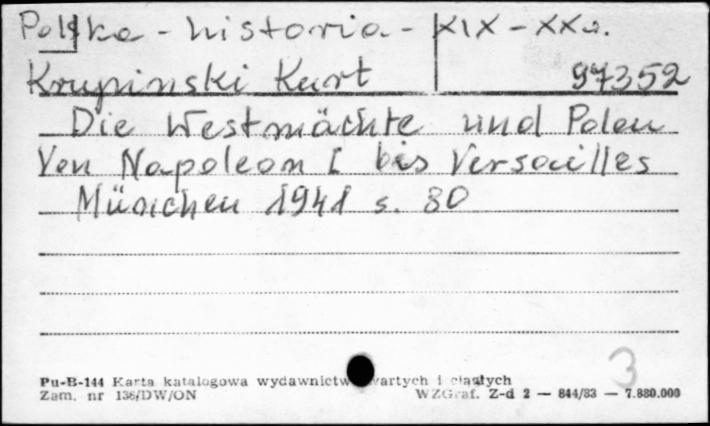 Polska - historia - XIX - XX w.
Krupinski Kurt 97352
Die Westmächte und Polen
Von Napoleon I bis Versailles
München 1941 s. 80
3
Pu-B-144 Karta katalogowa wydawnictw zwartych i ciągłych
Zam. nr 136/DW/ON WZGraf. Z-d 2 — 844/83 — 7.880.000